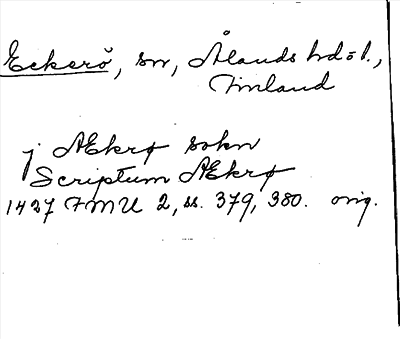 Eckerö, sn, Ålands hd o l.,
Finland
j Ækrø sokn
Scriptum Ækrø
1427 FMU 2, ss. 379, 380. orig.